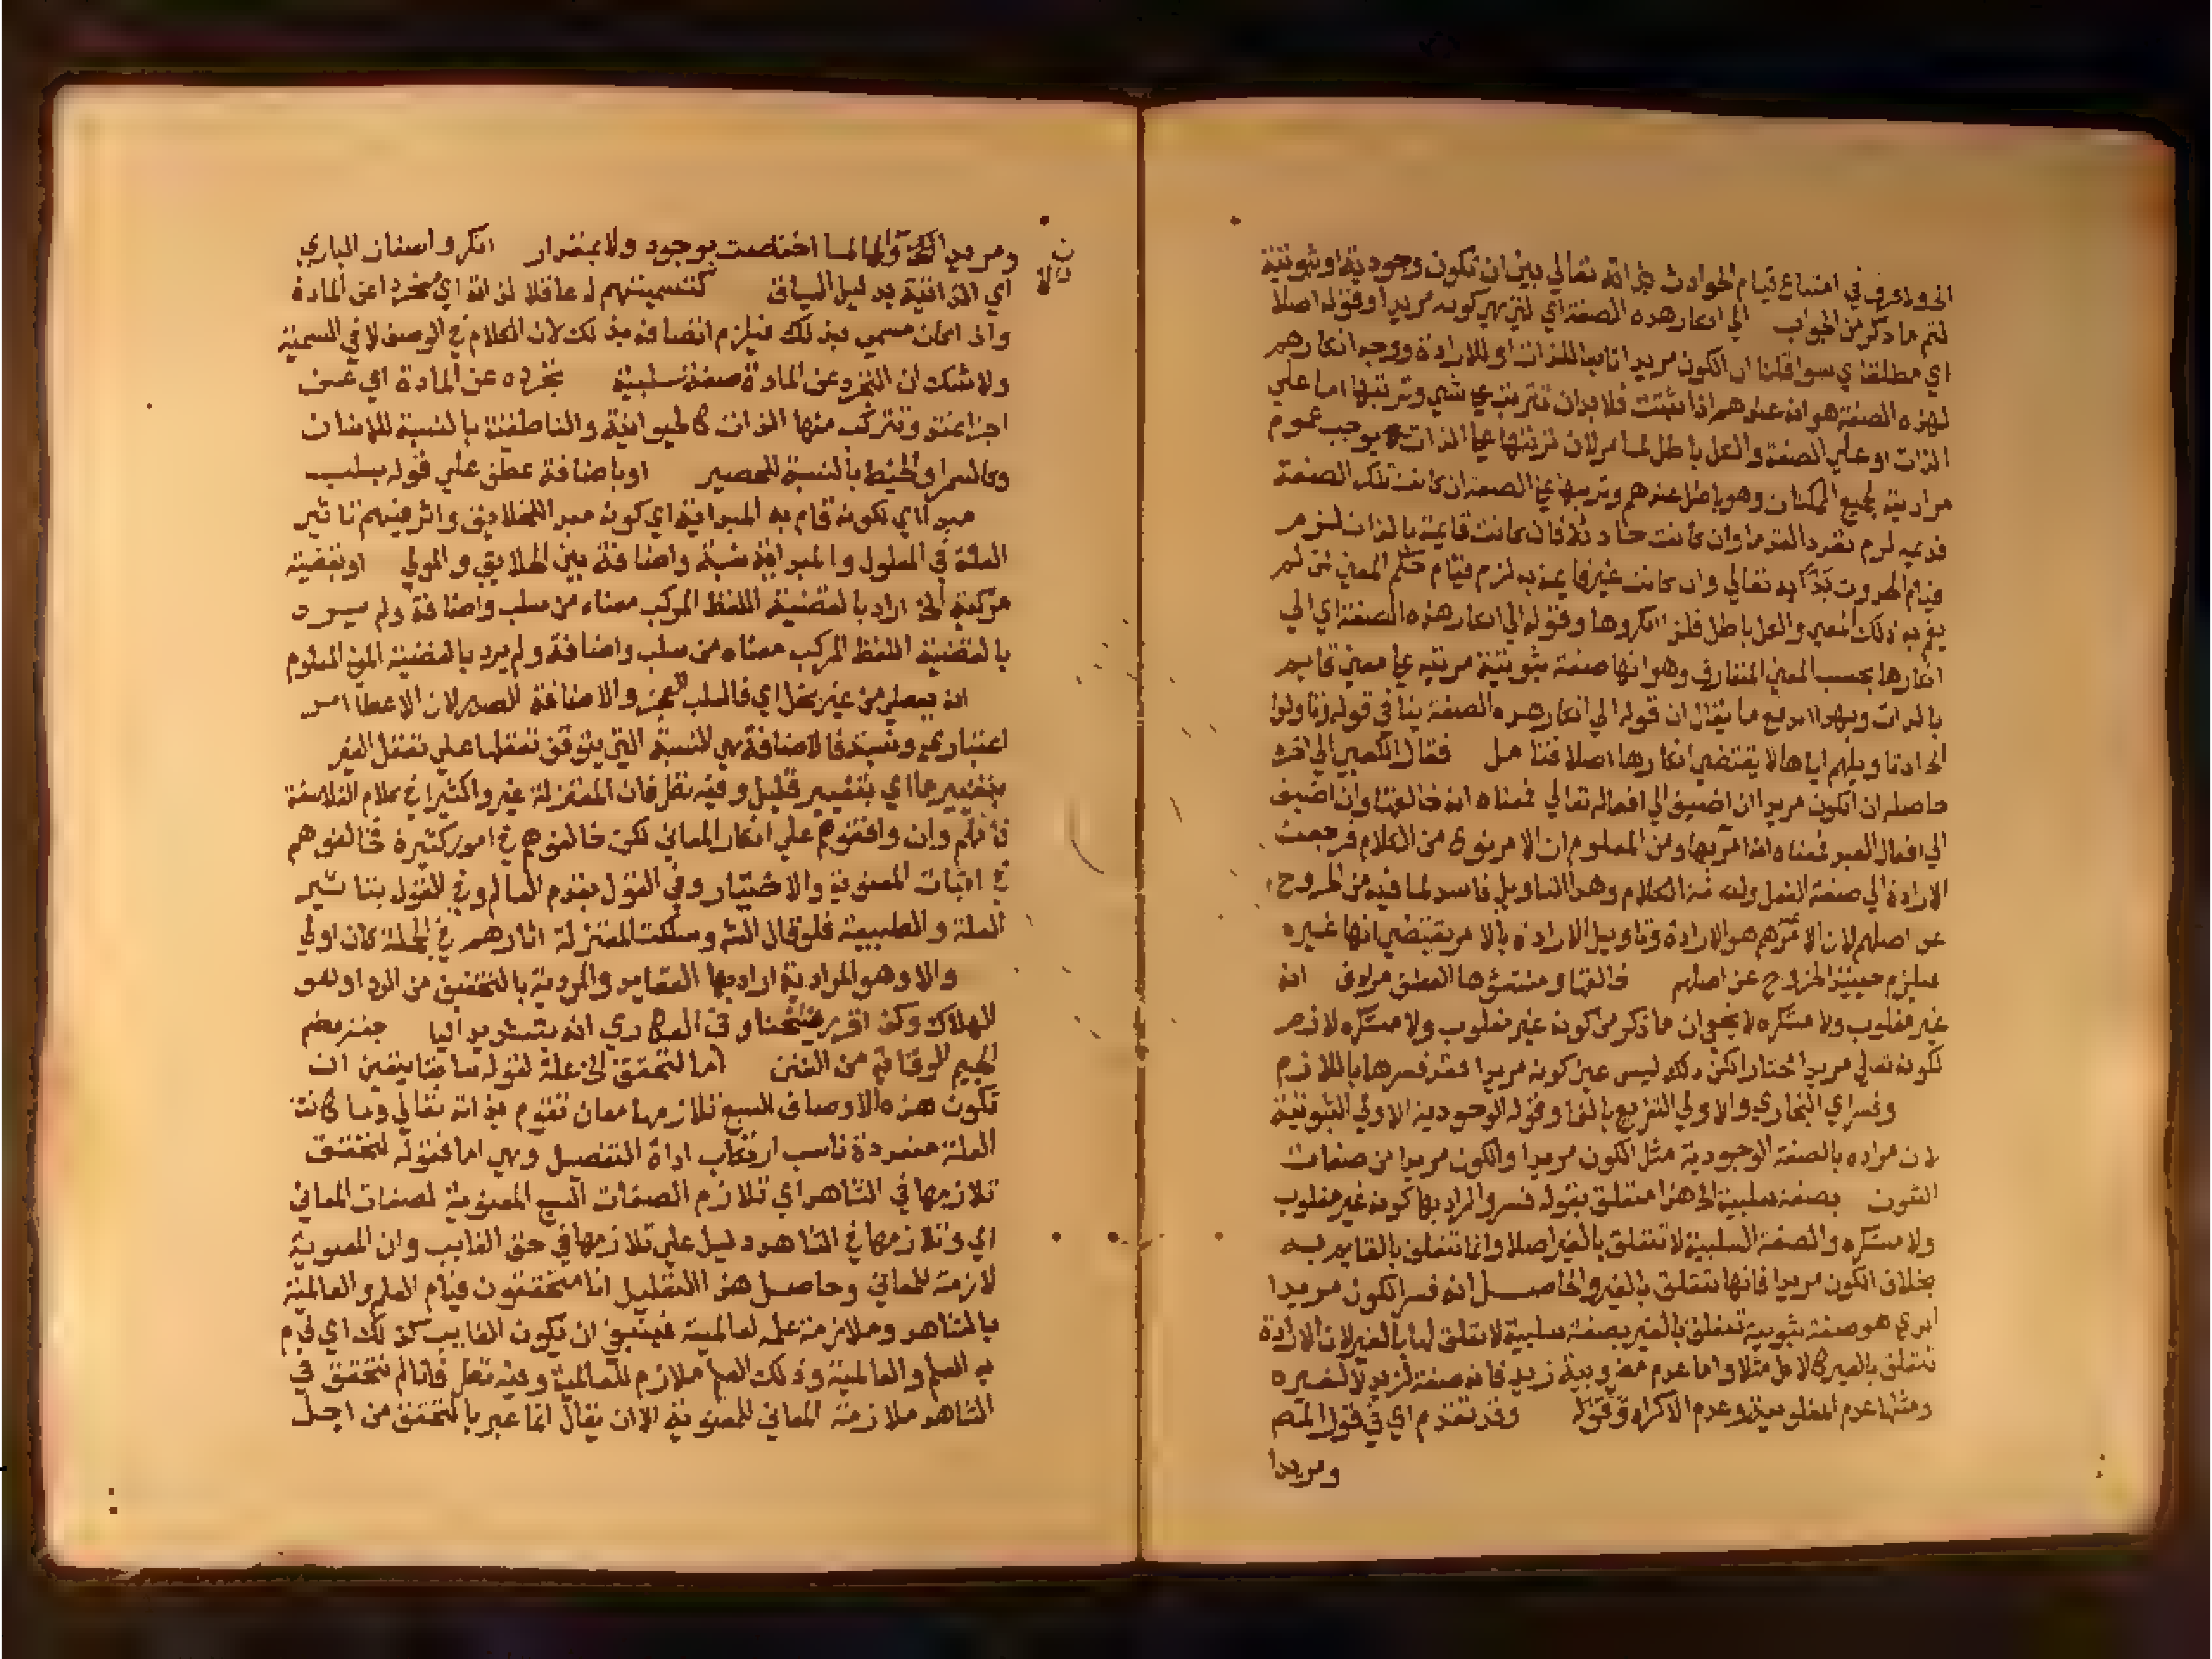 الخ ولا فرق في امتناع قيام الحوادث بذاته تعالي بين ان تكون وجودية او ثبوتية
لتم ما ذكر من الجواب الي انكار هذه الصفة اي التي هي كونه مريدا وقوله اصلا
اي مطلقا اي سوا قلنا ان الكون مريدا ثابتا للذات او للارادة ووجه انكارهم
لهذه الصفة هو انه عندهم اذا ثبتت فلا بد ان تترتب علي شي وترتبها اما علي
الذات او علي الصفة والكل باطل لما مر لان ترتبها علي الذات يوجب عموم
مراديته لجميع الممكنات وهو باطل عندهم وترتبها علي الصفة ان كانت تلك الصفة
قديمة لزم تعدد القدما وان كانت حادثة فان كانت قايمة بالذات لزم
قيام الحدوث بذاته تعالي وان كانت غير قايمة به لزم قيام حكم المعني بمن لم
يقم به ذلك المعني والكل باطل فلذا انكروها وقوله الي انكار هذه الصفة اي الي
انكارها بحسب المعني المتعارف وهو انها صفة ثبوتية مرتبة علي معني قايم
بالذات وبهذا اندفع ما يقال ان قوله الي انكار هذه الصفة ينافي قوله وتاولوا
الخ اذ تاويلهم اياها لا يقتضي انكارها اصلا فتامل فقال الكعبي الي اخره
حاصله ان الكون مريدا ان اضيف الي افعاله تعالي فمعناه انه خالقها وان اضيف
الي افعال العبد فمعناه انه امر بها ومن المعلوم ان الامر نوع من الكلام فرجعت
الارادة الي صفة الفعل ولصفة الكلام وهذا التاويل فاسد لما فيه من الخروج
عن اصلهم لان الامر عندهم هو الارادة وتاويل الارادة بالامر يقتضي انها غيره
فيلزم حينئذ الخروج عن اصلهم خالقها ومنشؤها العطف مرادف انه
غير مغلوب ولا مستكره لا يخفي ان ما ذكر من كونه غير مغلوب ولا مستكره لازم
لكونه تعالي مريدا مختارا لكن ذلك ليس عين كونه مريدا فقد فسرها باللازم
وفسر اي النجاري والاولي التفريع بالفا وقوله الوجودية الاولي الثبوتية
لان مراده بالصفة الوجودية مثل الكون مريدا والكون مريدا من صفات
الثبوت بصفة سلبية الخ هذا متعلق بقوله فسر والمراد بها كونه غير مغلوب
ولا مستكره والصفة السلبية لا تتعلق بالغير اصلا وانما تتعلق بالقايم به
بخلاف الكون مريدا فانها تتعلق بالغير والحاصل انه فسر الكون مريدا
الذي هو صفة ثبوتية تتعلق بالغير بصفة سلبية لا تعلق لها بالغير لان الارادة
تتعلق بالغير كالاكل مثلا واما عدم مضروبية زيد فانه صفة لزيد لا لغيره
ومثلها عدم المغلوبية وعدم الاكراه وقوله وقد تقدم اي في قول المص
ومريدا
ومريدا والا لما اختصت بوجود ولا بمقدار انكروا صفات الباري
اي الذاتية بدليل السياق كتسميتهم له عاقلا لذاته اي بتجرده عن المادة
واذا كان مسمي بذلك فيلزم اتصافه بذلك لان الكلام في الوصف لا في التسمية
ولا شك ان التجرد عن المادة صفة سلبية تجرده عن المادة اي عن
اجزا عقلية تتركب منها الذات كالحيوانية والناطقية بالنسبة للانسان
وكالسمار والخيط بالنسبة للحصير او باضافة عطف علي قوله بسلب
مبدا اي لكونه قام به المبداية اي كونه مبدا للخلايق واثر فيهم تاثير
العلة في المعلول والمبداية نسبة واضافة بين الخلايق والمولي او بقضية
مركبة الخ اراد بالقضية اللفظ المركب معناه من سلب واضافة ولم يرد
بالقضية اللفظ المركب معناه من سلب واضافة ولم يرد بالقضية المعني المعلوم
انه يعطي من غير بخل اي فالسلب للعجز والاضافة للصدر لان الاعطا امر
اعتباري ونسبة فالاضافة هي النسبة التي يتوقف تعقلها علي تعقل الغير
بتغيير ما اي بتغيير قليل وفيه نظر فان المعتزلة غيروا كثيرا في كلام الفلاسفة
فانهم وان وافقوهم علي انكار المعاني لكن خالفوهم في امور كثيرة خالفوهم
في اثبات المعنوية والاختيار وفي القول بقدم العالم وفي القول بتاثير
العلة والطبيعة فلو قال الش وسلكت المعتزلة اثارهم في الجملة كان اولي
والاودهو المرادية اراد بها العقايد والمردية بالتخفيف من الرد او هو
الهلاك وكذا اقرر شيخنا وفي السكاري انه بتشديد اليا
الجيم الوقاية من الفتن اما لتحقق الخ علة لقوله سابقا يتعين ان
تكون هذه الاوصاف السبع تلازمها معان تقوم بذاته تعالي ولما كانت
العلة متعددة ناسب ارتكاب اداة التفصيل وهي اما فقوله لتحقق
تلازمها في الشاهد اي تلازم الصفات السبع المعنوية لصفات المعاني
اي وتلازمها في الشاهد دليل علي تلازمها في حق الغايب وان المعنوية
لازمة للمعاني وحاصل هذا التعليل انا متحققون قيام العلم والعالمية
بالشاهد وملازمة علمه لعالميته فينبغي ان يكون الغايب كذلك اي قام
به العلم والعالمية وذلك العلم ملازم للعالمية وفيه نظر فانا لم نتحقق في
الشاهد ملازمة المعاني للمعنوية الا ان يقال انما عبر بالتحقق من اجل